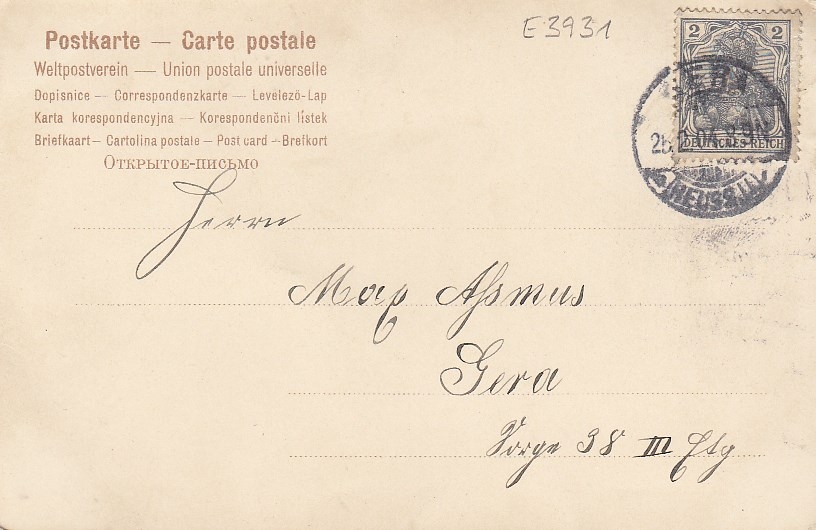 Postkarte — Carte postale
Weltpostverein — Union postale universelle
Dopisnice — Correspondenzkarte — Levelező-Lap
Karta korespondencyjna — Korespondenční lístek
Briefkaart — Cartolina postale — Post card — Brefkort
Открытое-письмо
E3931
2 2
DEUTSCHES REICH
GERA
REUSS
Herrn
Max Assmus
Gera
Sorge 38 III Etg